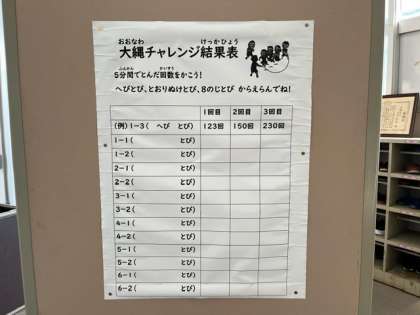 おおなわ けっかひょう
大縄チャレンジ結果表
ふんかん かいすう
5分間でとんだ回数をかこう!
へびとび、とおりぬけとび、8のじとび からえらんでね!
1回目 2回目 3回目
(例)1-3( へび とび) 123回 150回 230回
1-1( とび)
1-2( とび)
2-1( とび)
2-2( とび)
3-1( とび)
3-2( とび)
4-1( とび)
4-2( とび)
5-1( とび)
5-2( とび)
6-1( とび)
6-2( とび)